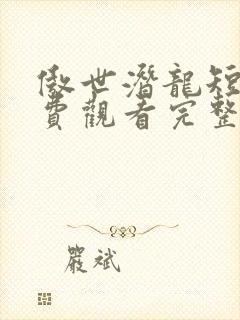 傲世潛龍短
費觀看完整
嚴斌